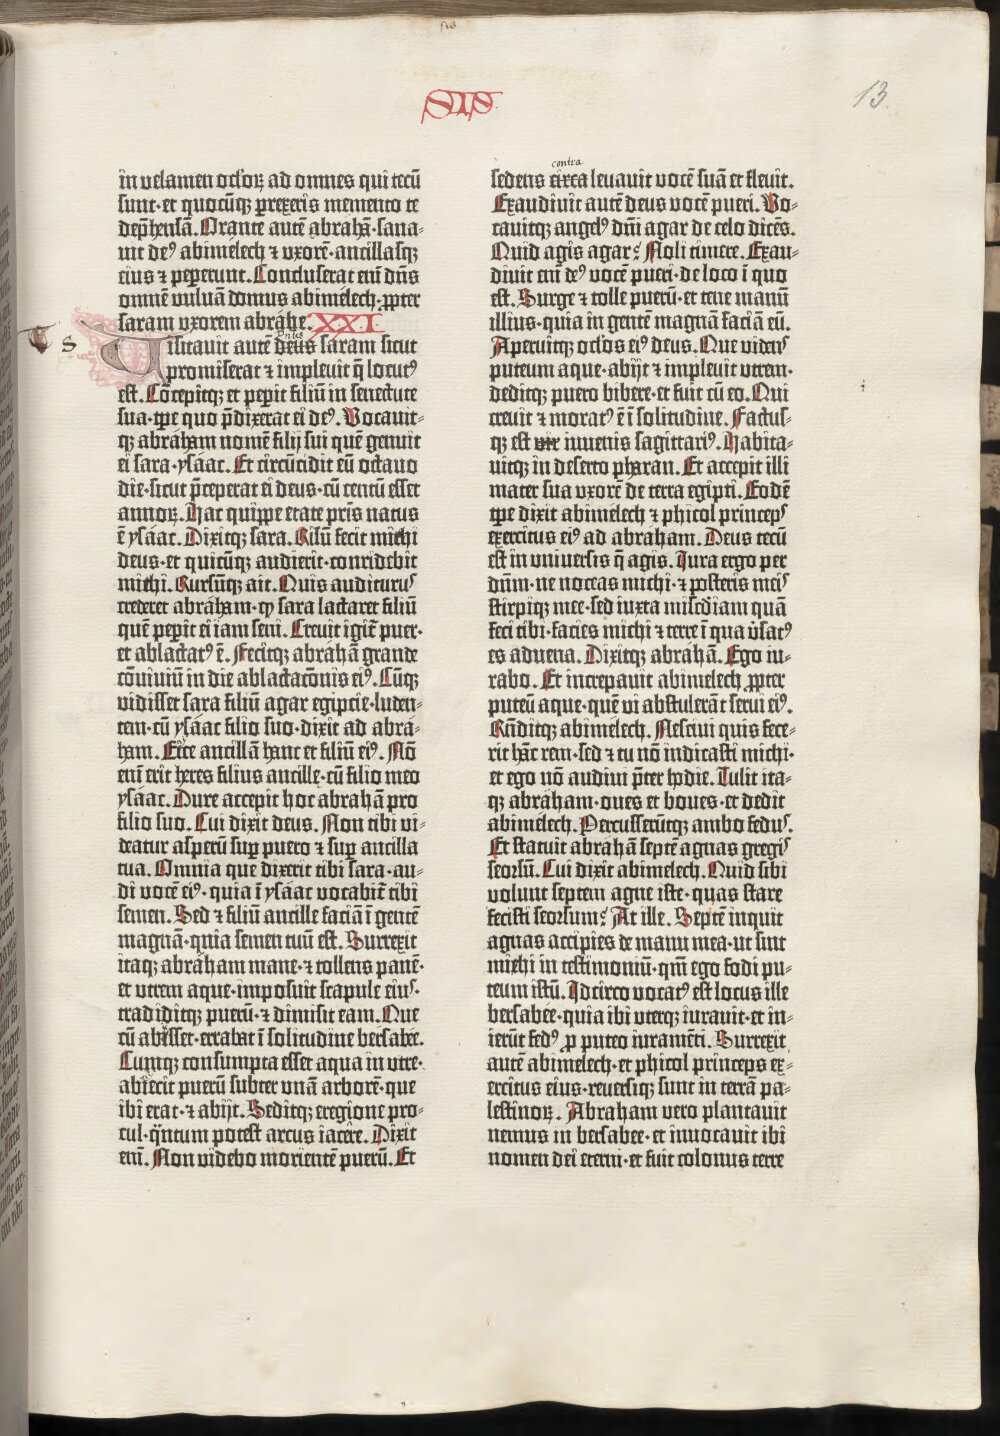 sis
SIS
13
in velamen oclōꝝ ad omnes qui tecū
sunt·et quocūqꝫ prexeris memento te
dep̄hensā. Orante autē abrahā·sana-
uit deꝰ abimelech ⁊ vxorē·ancillasqꝫ
eius ⁊ pepererunt. Concluserat eni dn̄s
omnē vuluā domus abimelech·ꝓpter
saram vxorem abrahe. XXI
s
Visitauit autē deus saram sicut
promiserat ⁊ impleuit q̄ locutꝰ
est. Cōcepitqꝫ et peperit filiū in senectute
sua·tp̄e quo p̄dixerat ei deꝰ. Vocauit-
qꝫ abraham nomē filij sui quē genuit
ei sara·ysaac. Et circūcidit eū octauo
die·sicut p̄ceperat ei deus·cū centū esset
annoꝝ. Hac quippe etate pr̄is natus
ē ysaac. Dixitqꝫ sara. Risū fecit michi
deus·et quicūqꝫ audierit·corridebit
michi. Rursūqꝫ ait. Quis auditurus
crederet abraham·ꝙ sara lactaret filiū
quē peperit ei iam seni. Creuit igit̄ puer·
et ablactatꝰ ē. Fecitqꝫ abrahā grande
cōuiuiū in die ablactacōnis eiꝰ. Cūqꝫ
vidisset sara filiū agar egiptie·luden-
tem·cū ysaac filio suo·dixit ad abra-
ham. Eice ancillā hanc et filiū eiꝰ. Nō
eni erit heres filius ancille·cū filio meo
ysaac. Dure accepit hoc abrahā pro
filio suo. Cui dixit deus. Non tibi vi-
deatur asperū sup̄ puero ⁊ sup̄ ancilla
tua. Omnia que dixerit tibi sara·au-
di vocē eiꝰ·quia ī ysaac vocabit̄ tibi
semen. Sed ⁊ filiū ancille faciā ī gentē
magnā·quia semen tuū est. Surrexit
itaqꝫ abraham mane·⁊ tollens panē·
et vtrem aque·imposuit scapule eius·
tradiditqꝫ puerū·⁊ dimisit eam. Que
cū abisset·errabat ī solitudine bersabee.
Cumqꝫ consumpta esset aqua in vtre·
abiecit puerū subter vnā arborē·que
ibi erat·⁊ abijt. Seditqꝫ eregione pro-
cul·q̄ntum potest arcus iacere. Dixit
eni. Non videbo morientē puerū. Et
contra
sedens circa leuauit vocē suā et fleuit.
Exaudiuit autē deus vocē pueri. Vo-
cauitqꝫ angelꝰ dn̄i agar de celo dicēs.
Quid agis agar? Noli timere. Exau-
diuit eni deꝰ vocē pueri·de loco ī quo
est. Surge ⁊ tolle puerū·et tene manū
illius·quia in gentē magnā faciā eū.
Aperuitqꝫ oclōs eiꝰ deus. Que videns
puteum aque·abijt ⁊ impleuit vtrem·
deditqꝫ puero bibere·et fuit cū eo. Qui
creuit ⁊ moratꝰ ē ī solitudine. Factus-
qꝫ est vir iuuenis sagittariꝰ. Habita-
uitqꝫ in deserto pharan. Et accepit illi
mater sua vxorē de terra egipti. Eodē
tp̄e dixit abimelech ⁊ phicol princeps
exercitus eiꝰ ad abraham. Deus tecū
est in vniuersis q̄ agis. Iura ergo per
deum·ne noceas michi·⁊ posteris meis
stirpiqꝫ mee·sed iuxta misc̄diam quā
feci tibi·facies michi ⁊ terre ī qua v̓satꝰ
es aduena. Dixitqꝫ abrahā. Ego iu-
rabo. Et increpauit abimelech ꝓpter
puteū aque·quē vi abstulerāt serui eiꝰ.
Rn̄ditqꝫ abimelech. Nesciui quis fece-
rit hāc rem·sed ⁊ tu nō indicasti michi·
et ego nō audiui p̄ter hodie. Tulit ita-
qꝫ abraham·oues et boues·et dedit
abimelech. Percusserūtqꝫ ambo fedus.
Et statuit abrahā septē agnas gregis
seorsū. Cui dixit abimelech. Quid sibi
volunt septem agne iste·quas stare
fecisti seorsum? At ille. Septē inquit
agnas accipies de manu mea·ut sint
michi in testimoniū·qm̄ ego fodi pu-
teum istū. Idcirco vocatꝰ est locus ille
bersabee·quia ibi vterqꝫ iurauit·et in-
ierūt fedꝰ ꝓ puteo iuramēti. Surrexit
autē abimelech·et phicol princeps ex-
ercitus eius·reuersiqꝫ sunt in terrā pa-
lestinoꝝ. Abraham vero plantauit
nemus in bersabee·et inuocauit ibi
nomen dei eterni·et fuit colonus terre